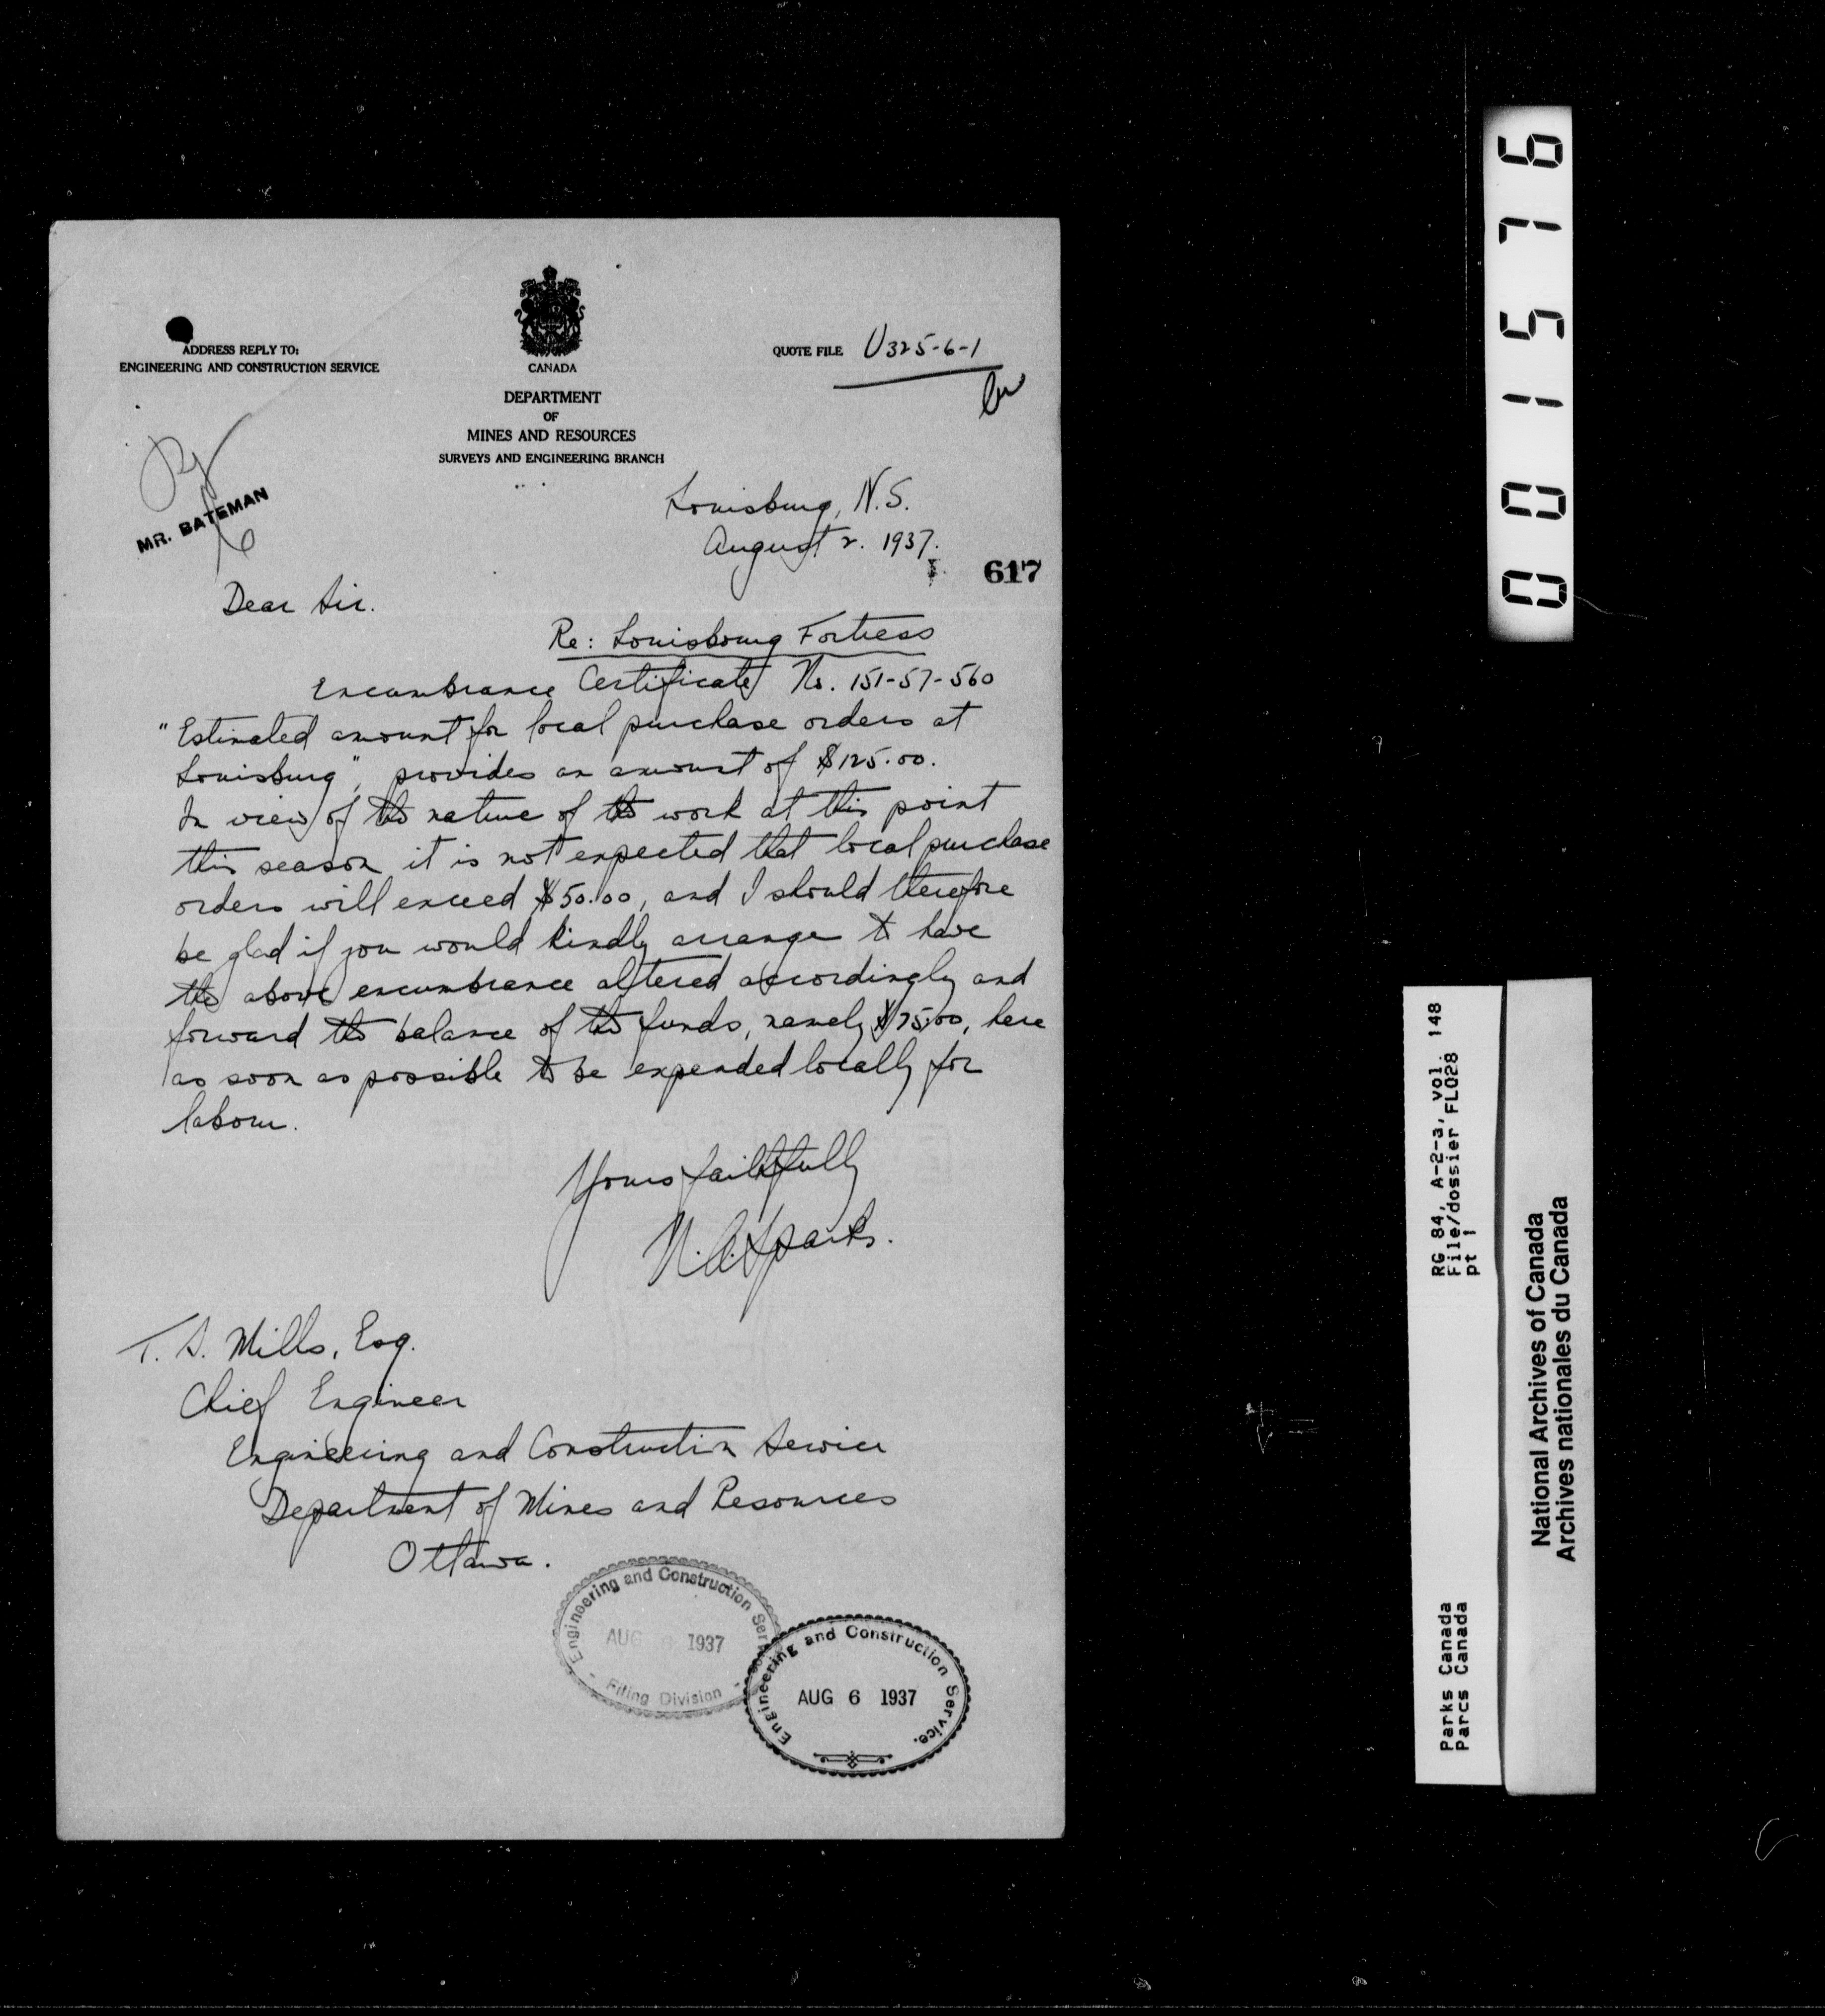 ADDRESS REPLY TO:
ENGINEERING AND CONSTRUCTION SERVICE
CANADA
DEPARTMENT
OF
MINES AND RESOURCES
SURVEYS AND ENGINEERING BRANCH
QUOTE FILE U325-6-1
MR. BATEMAN
Louisburg, N.S.
August 2. 1937.
617
Dear Sir.
Re: Louisbourg Fortress
Encumbrance Certificate No. 151-57-560
"Estimated amount for local purchase orders at
Louisburg", provides an amount of $125.00.
In view of the nature of the work at this point
this season it is not expected that local purchase
orders will exceed $50.00, and I should therefore
be glad if you would kindly arrange to have
the above encumbrance altered accordingly and
forward the balance of the funds, namely $75.00, here
as soon as possible to be expended locally for
labour.
Yours faithfully
Sparks.
T. S. Mills, Esq.
Chief Engineer
Engineering and Construction Service
Department of Mines and Resources
Ottawa.
Engineering and Construction Service
AUG 1937
Filing Division
Engineering and Construction Service.
AUG 6 1937
001576
RG 84, A-2-a, vol. 148
File/dossier FLO28
pt 1
Parks Canada
Parcs Canada
National Archives of Canada
Archives nationales du Canada